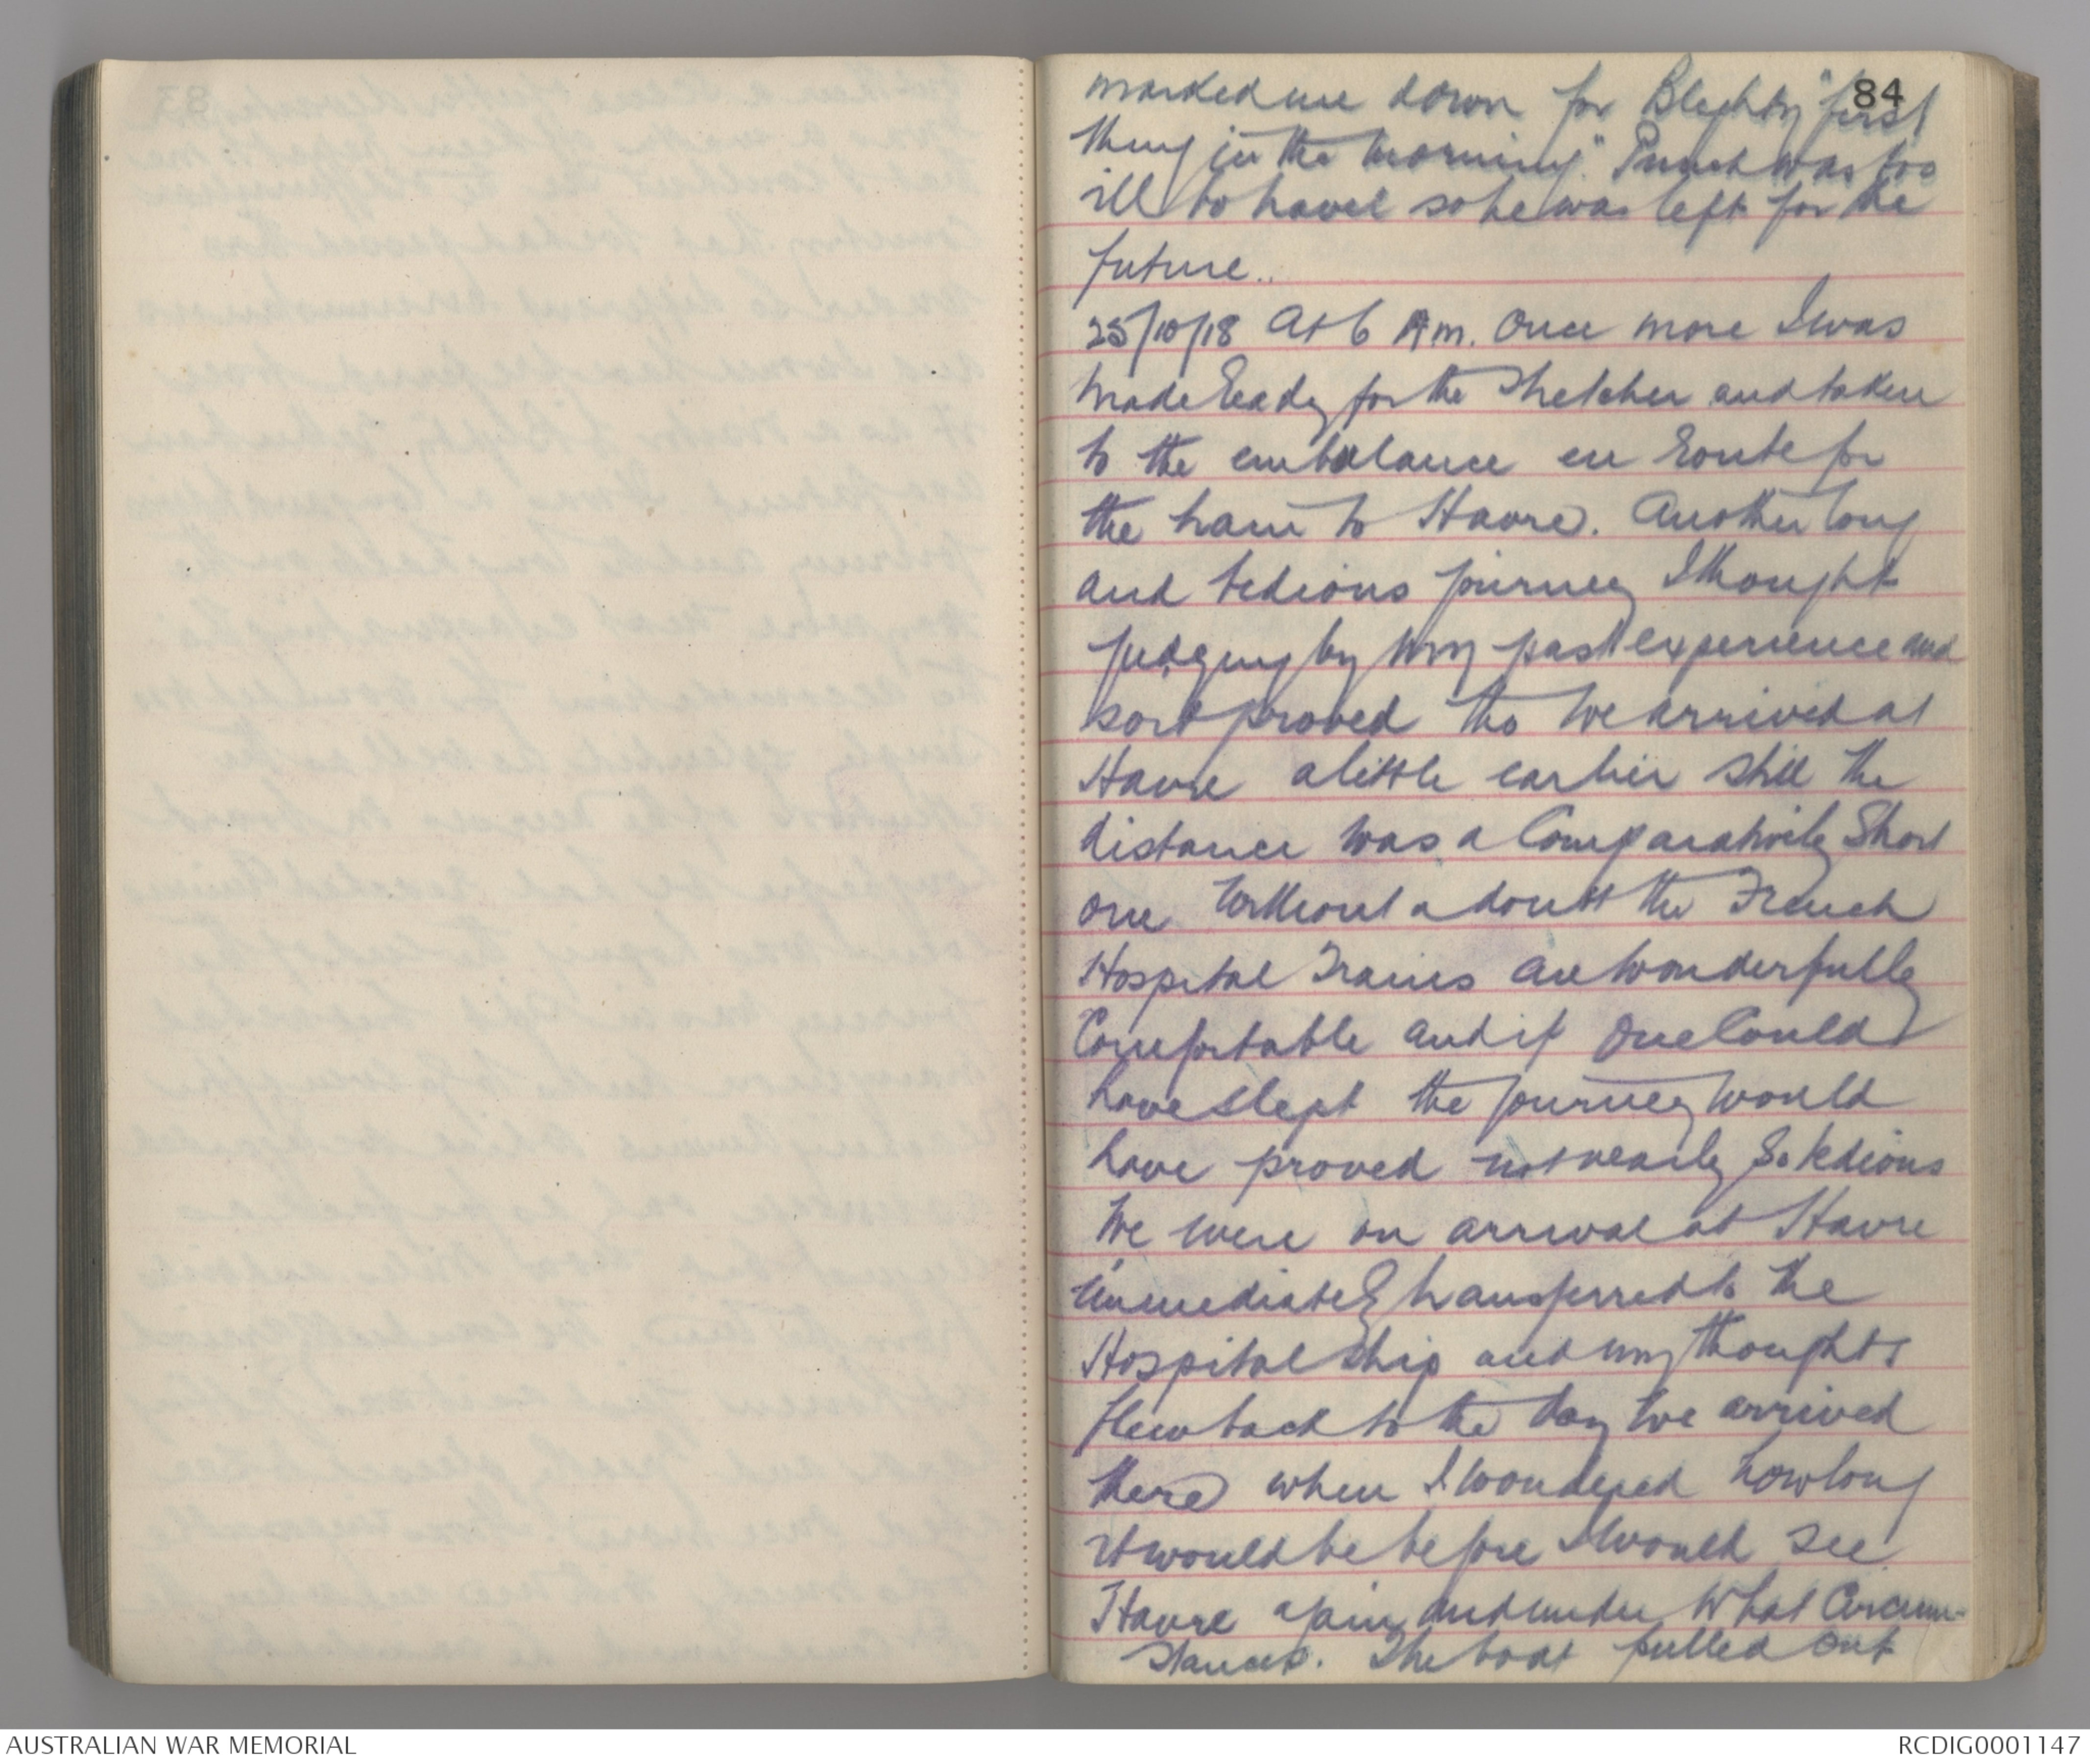 84
marked me down for Blighty "first
thing in the morning." was too
ill to travel so he was left for the
future..
25/10/18 At 6 Am. Once more I was
made Ready for the Stretcher and taken
to the embulance en Route for
the train to Havre. Another long
and tedious journey I thought
judging by my past experience and
so it proved tho we arrived at
Havre a little earlier still the
distance was a Comparatively Short
one. Without a doubt the French
Hospital Trains are wonderfully
Comfortable and if One Could
have slept the journey would
have proved not nearly So tedious
We were on arrival at Havre
immediately transferred to the
Hospital Ship and my thoughts
flew back to the day we arrived
there when I wondered how long
it would be before I would see
Havre again and under what Circum-
stances. The boat pulled out
AUSTRALIAN WAR MEMORIAL
RCDIG0001147